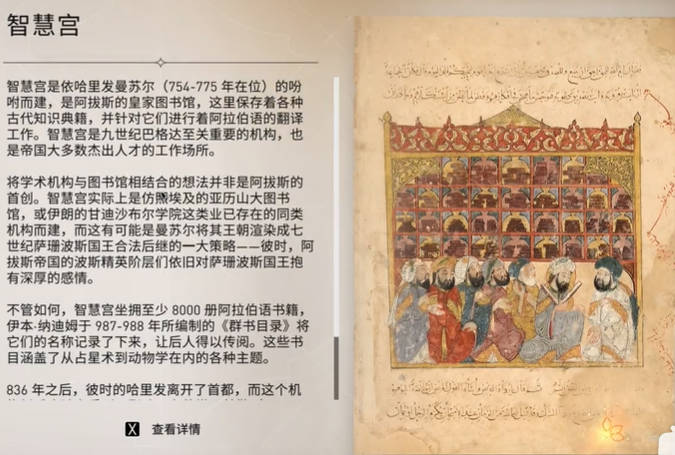 智慧宫
智慧宫是依哈里发曼苏尔（754-775 年在位）的吩
咐而建，是阿拔斯的皇家图书馆，这里保存着各种
古代知识典籍，并针对它们进行着阿拉伯语的翻译
工作。智慧宫是九世纪巴格达至关重要的机构，也
是帝国大多数杰出人才的工作场所。
将学术机构与图书馆相结合的想法并非是阿拔斯的
首创。智慧宫实际上是仿照埃及的亚历山大图书
馆，或伊朗的甘迪沙布尔学院这类业已存在的同类
机构而建，而这有可能是曼苏尔将其王朝渲染成七
世纪萨珊波斯国王合法后继的一大策略——彼时，阿
拔斯帝国的波斯精英阶层们依旧对萨珊波斯国王抱
有深厚的感情。
不管如何，智慧宫坐拥至少 8000 册阿拉伯语书籍，
伊本·纳迪姆于 987-988 年所编制的《群书目录》将
它们的名称记录了下来，让后人得以传阅。这些书
目涵盖了从占星术到动物学在内的各种主题。
836 年之后，彼时的哈里发离开了首都，而这个机
X 查看详情